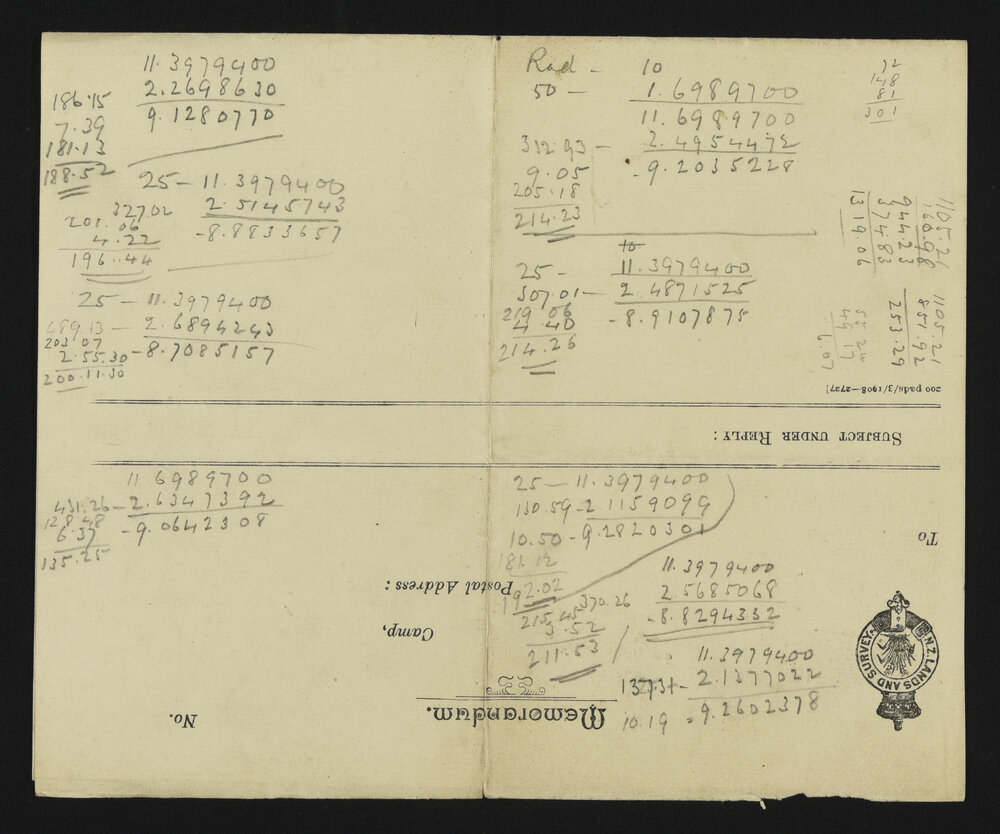 11.3979400
2.2698630
9.1280770
186.15
7.39
181.13
188.52
25 - 11.3979400
327.02
2.5145743
201.06
-8.8833657
4.22
196.44
25 - 11.3979400
489.13 - 2.6894243
203 07
2.55.30 - 8.7085157
200.11.30
Rad - 10
50 - 1.6989700
11.6989700
312.93 - 2.4954472
9.05 - 9.2035228
205.18
214.23
25 - 11.3979400
307.01 - 2.4871525
219 06 - 8.9107875
4 40
214.26
72
148
81
301
1105.21
160.98
944.23
374.83
1319.06
1105.21
851.92
253.29
55.24
49.17
6.07
200 pads/3/1908—2727]
SUBJECT UNDER REPLY:
11 6989700
431.26 - 2.6347392
128 48 - 9.0642308
6.37
135.25
25 - 11.3979400
130.59 - 2.1159099
10.50 - 9.2820301
181.12
192.02
To
Postal Address:
11.3979400
370.26
2.5685068
215.45
-8.8294332
3.52
211.53
Camp,
N.Z. LANDS AND SURVEY
11.3979400
2.1377022
10.19 = 9.2602378
Memorandum.
No.